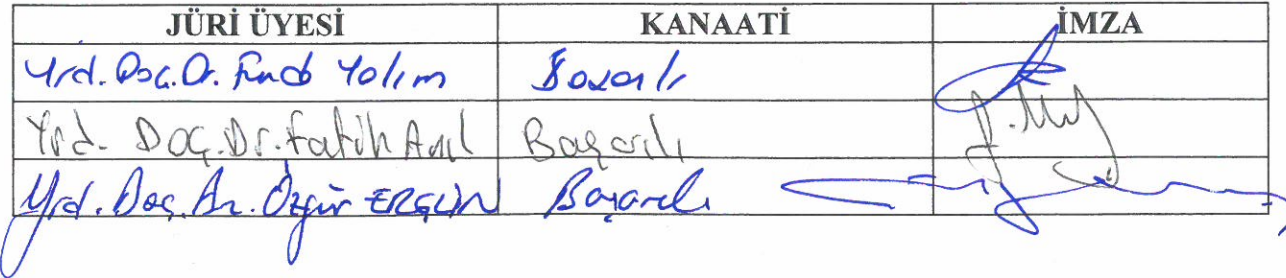 JÜRİ ÜYESİ KANAATİ İMZA
Yrd. Doç. Dr. Yalım Başarılı
Yrd. Doç. Dr. Fatih Anıl Başarılı
Yrd. Doç. Dr. Özgür ERGÜN Başarılı